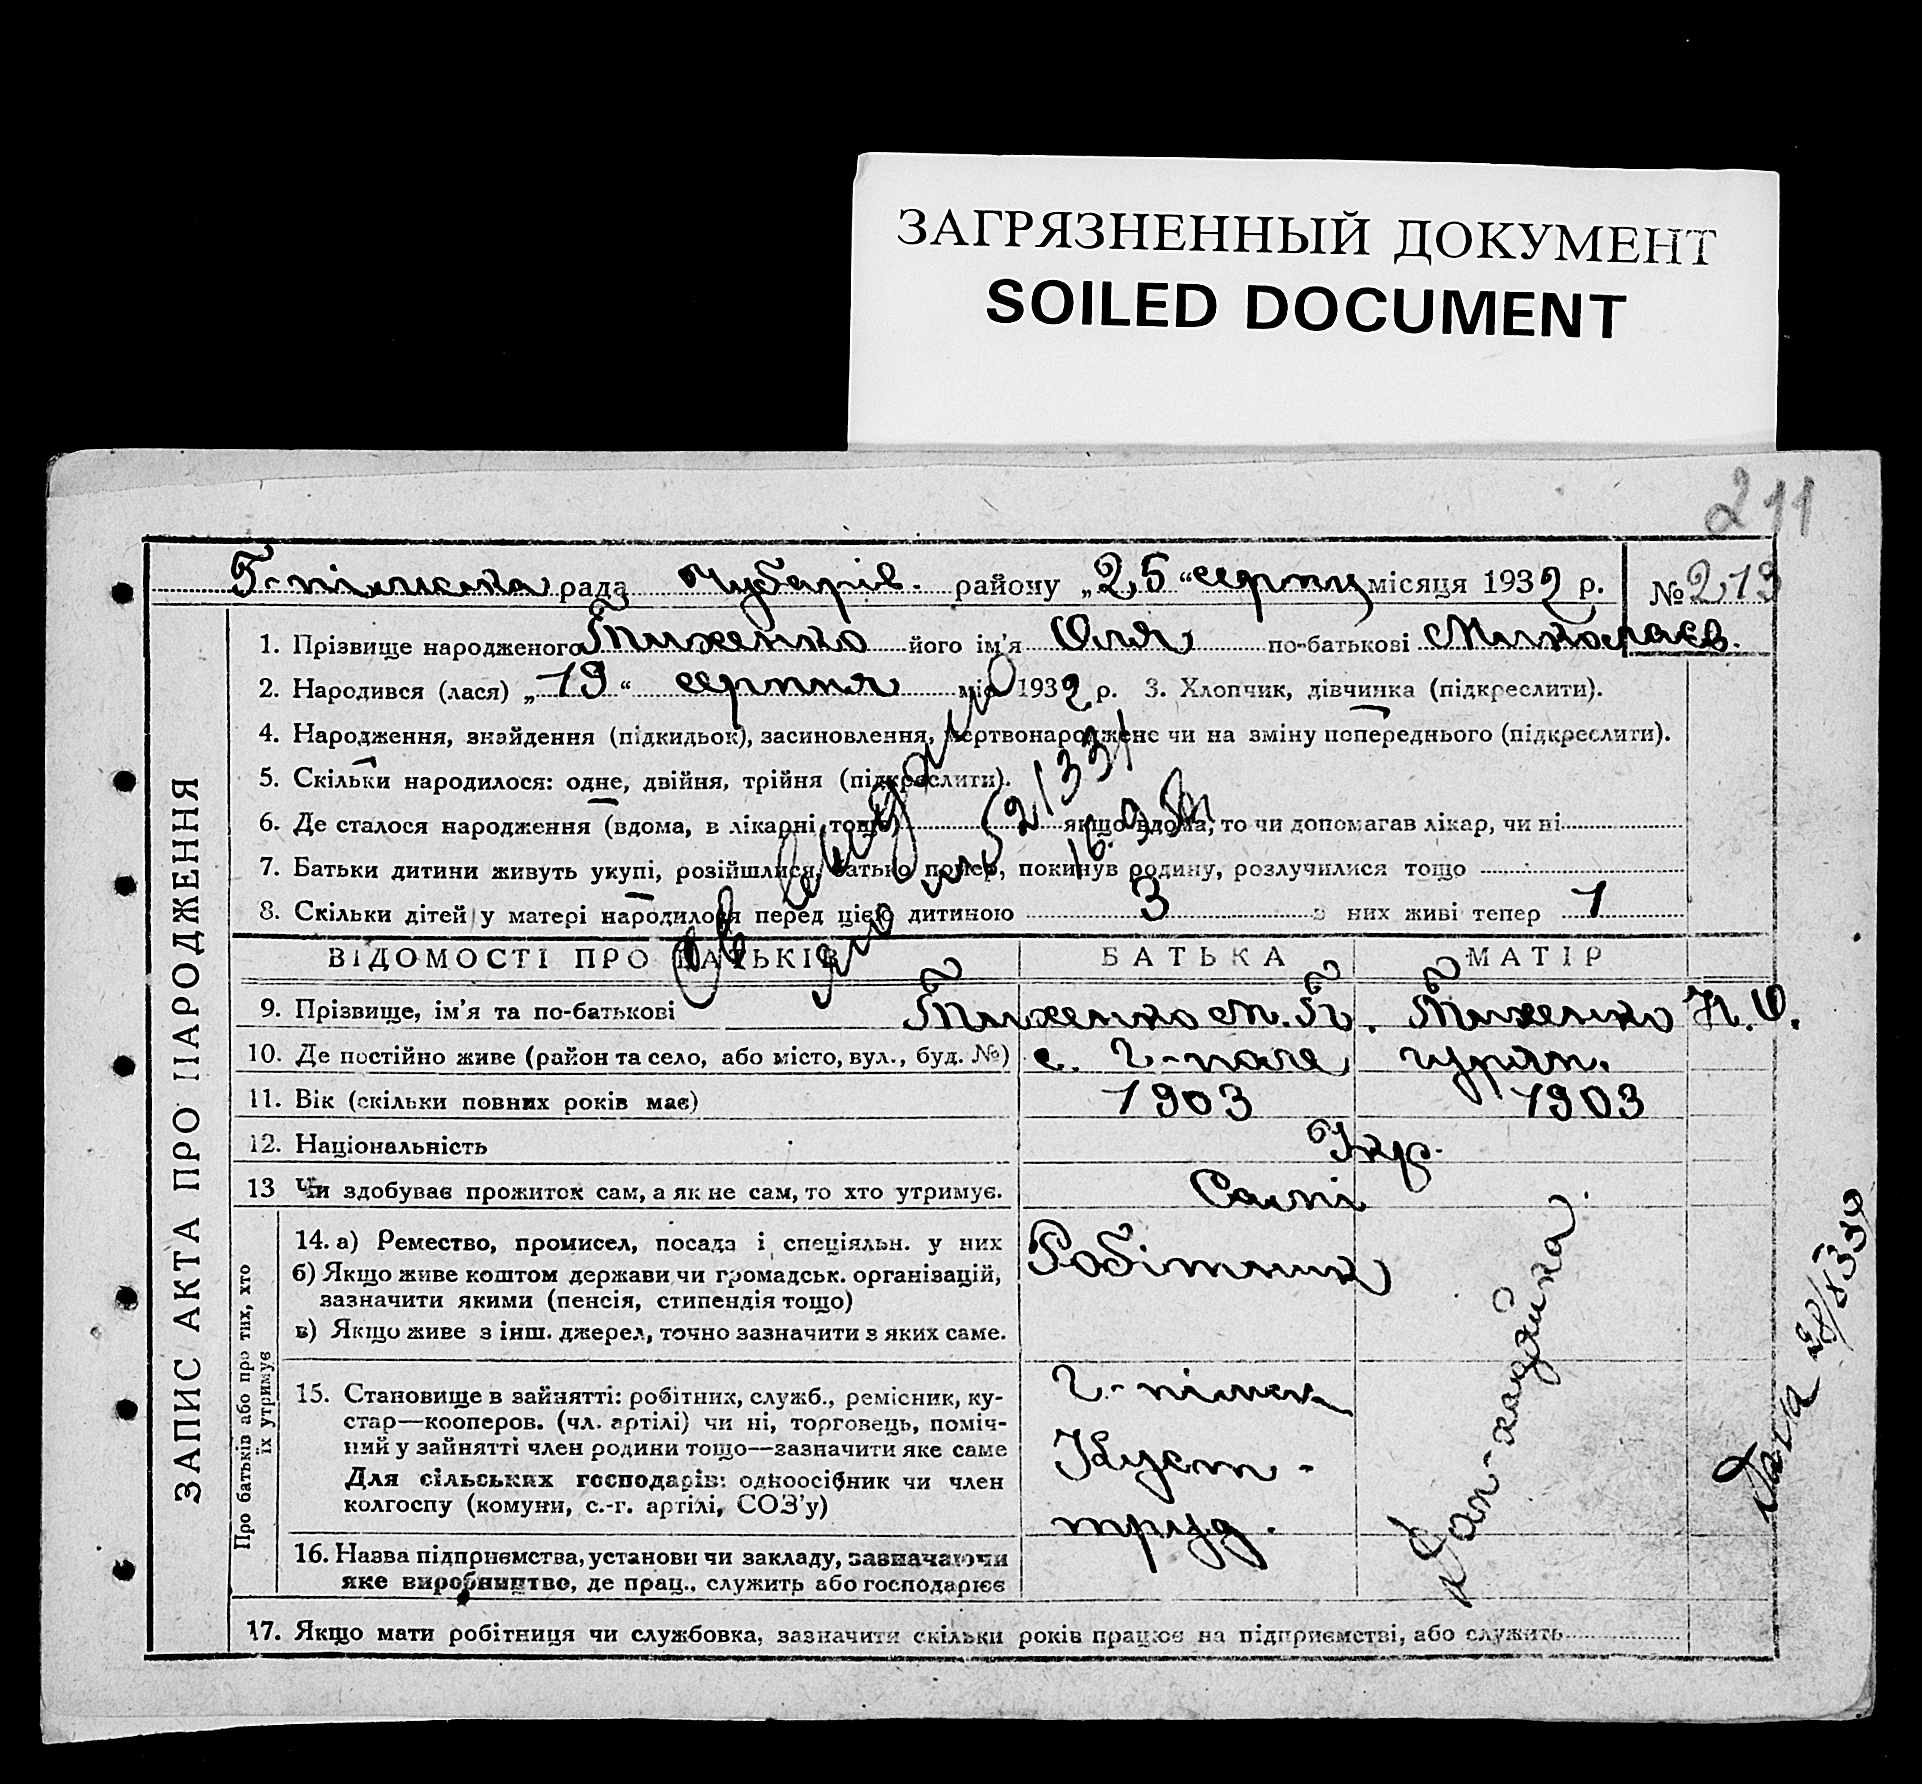 ЗАГРЯЗНЕННЫЙ ДОКУМЕНТ
SOILED DOCUMENT
211
Г-пільська рада Чубарів. району „25“ серпня місяця 1932 р. № 213
ЗАПИС АКТА ПРО НАРОДЖЕННЯ
1. Прізвище народженого Тиженко його ім'я Оля по-батькові Миколаєв.
2. Народився (лася) „19“ серпня міс 1932 р. 3. Хлопчик, дівчинка (підкреслити).
4. Народження, знайдення (підкидьок), засиновлення, мертвонароджене чи на зміну попереднього (підкреслити).
5. Скільки народилося: одне, двійня, трійня (підкреслити).
6. Де сталося народження (вдома, в лікарні тощо) якщо вдома, то чи допомагав лікар, чи ні
7. Батьки дитини живуть укупі, розійшлися, батько помер, покинув родину, розлучилися тощо
8. Скільки дітей у матері народилося перед цією дитиною 3 з них живі тепер 1
521331
16.9.58
ВІДОМОСТІ ПРО БАТЬКІВ БАТЬКА МАТІР
9. Прізвище, ім'я та по-батькові Тиженко М. Т. Тиженко Н. О.
10. Де постійно живе (район та село, або місто, вул., буд. №) с. Г-поле
11. Вік (скільки повних років має) 1903 1903
12. Національність Укр.
13 Чи здобуває прожиток сам, а як не сам, то хто утримує. Самі
Про батьків або про тих, хто
їх утримує
14. а) Ремество, промисел, посада і спеціяльн. у них Робітник
б) Якщо живе коштом держави чи громадськ. організацій,
зазначити якими (пенсія, стипендія тощо)
в) Якщо живе з інш. джерел, точно зазначити з яких саме.
Дом-хазяйка
15. Становище в зайнятті: робітник, служб., ремісник, ку-
стар—кооперов. (чл. артілі) чи ні, торговець, поміч-
ний у зайнятті член родини тощо—зазначити яке саме
Для сільських господарів: одноосібник чи член
колгоспу (комуни, с.-г. артілі, СОЗ'у)
Г-пільск
Куст-
труд.
16. Назва підприємства, установи чи закладу, зазначаючи
яке виробництво, де прац., служить або господарює
17. Якщо мати робітниця чи службовка, зазначити скільки років працює на підприємстві, або служить